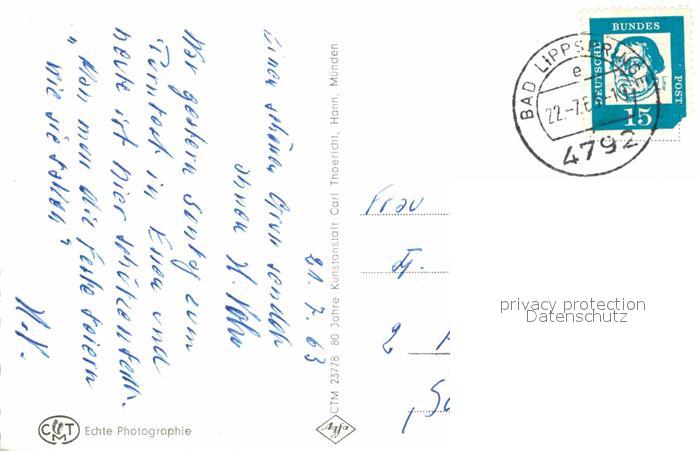 21.7.63
Einen schönen Gruß sendet
Ihnen H.
War gestern Sontag zum
Turnfest in Essen und
heute ist hier Schützenfest.
"Man muß die Feste feiern
wie sie fallen"
CTM 23778 80 Jahre Kunstanstalt Carl Thoericht, Hann. Münden
Agfa
CMT Echte Photographie
DEUTSCHE BUNDES POST
15
BAD LIPPSPRINGE
e
22.-7.6
4792
Frau
2
privacy protection
Datenschutz